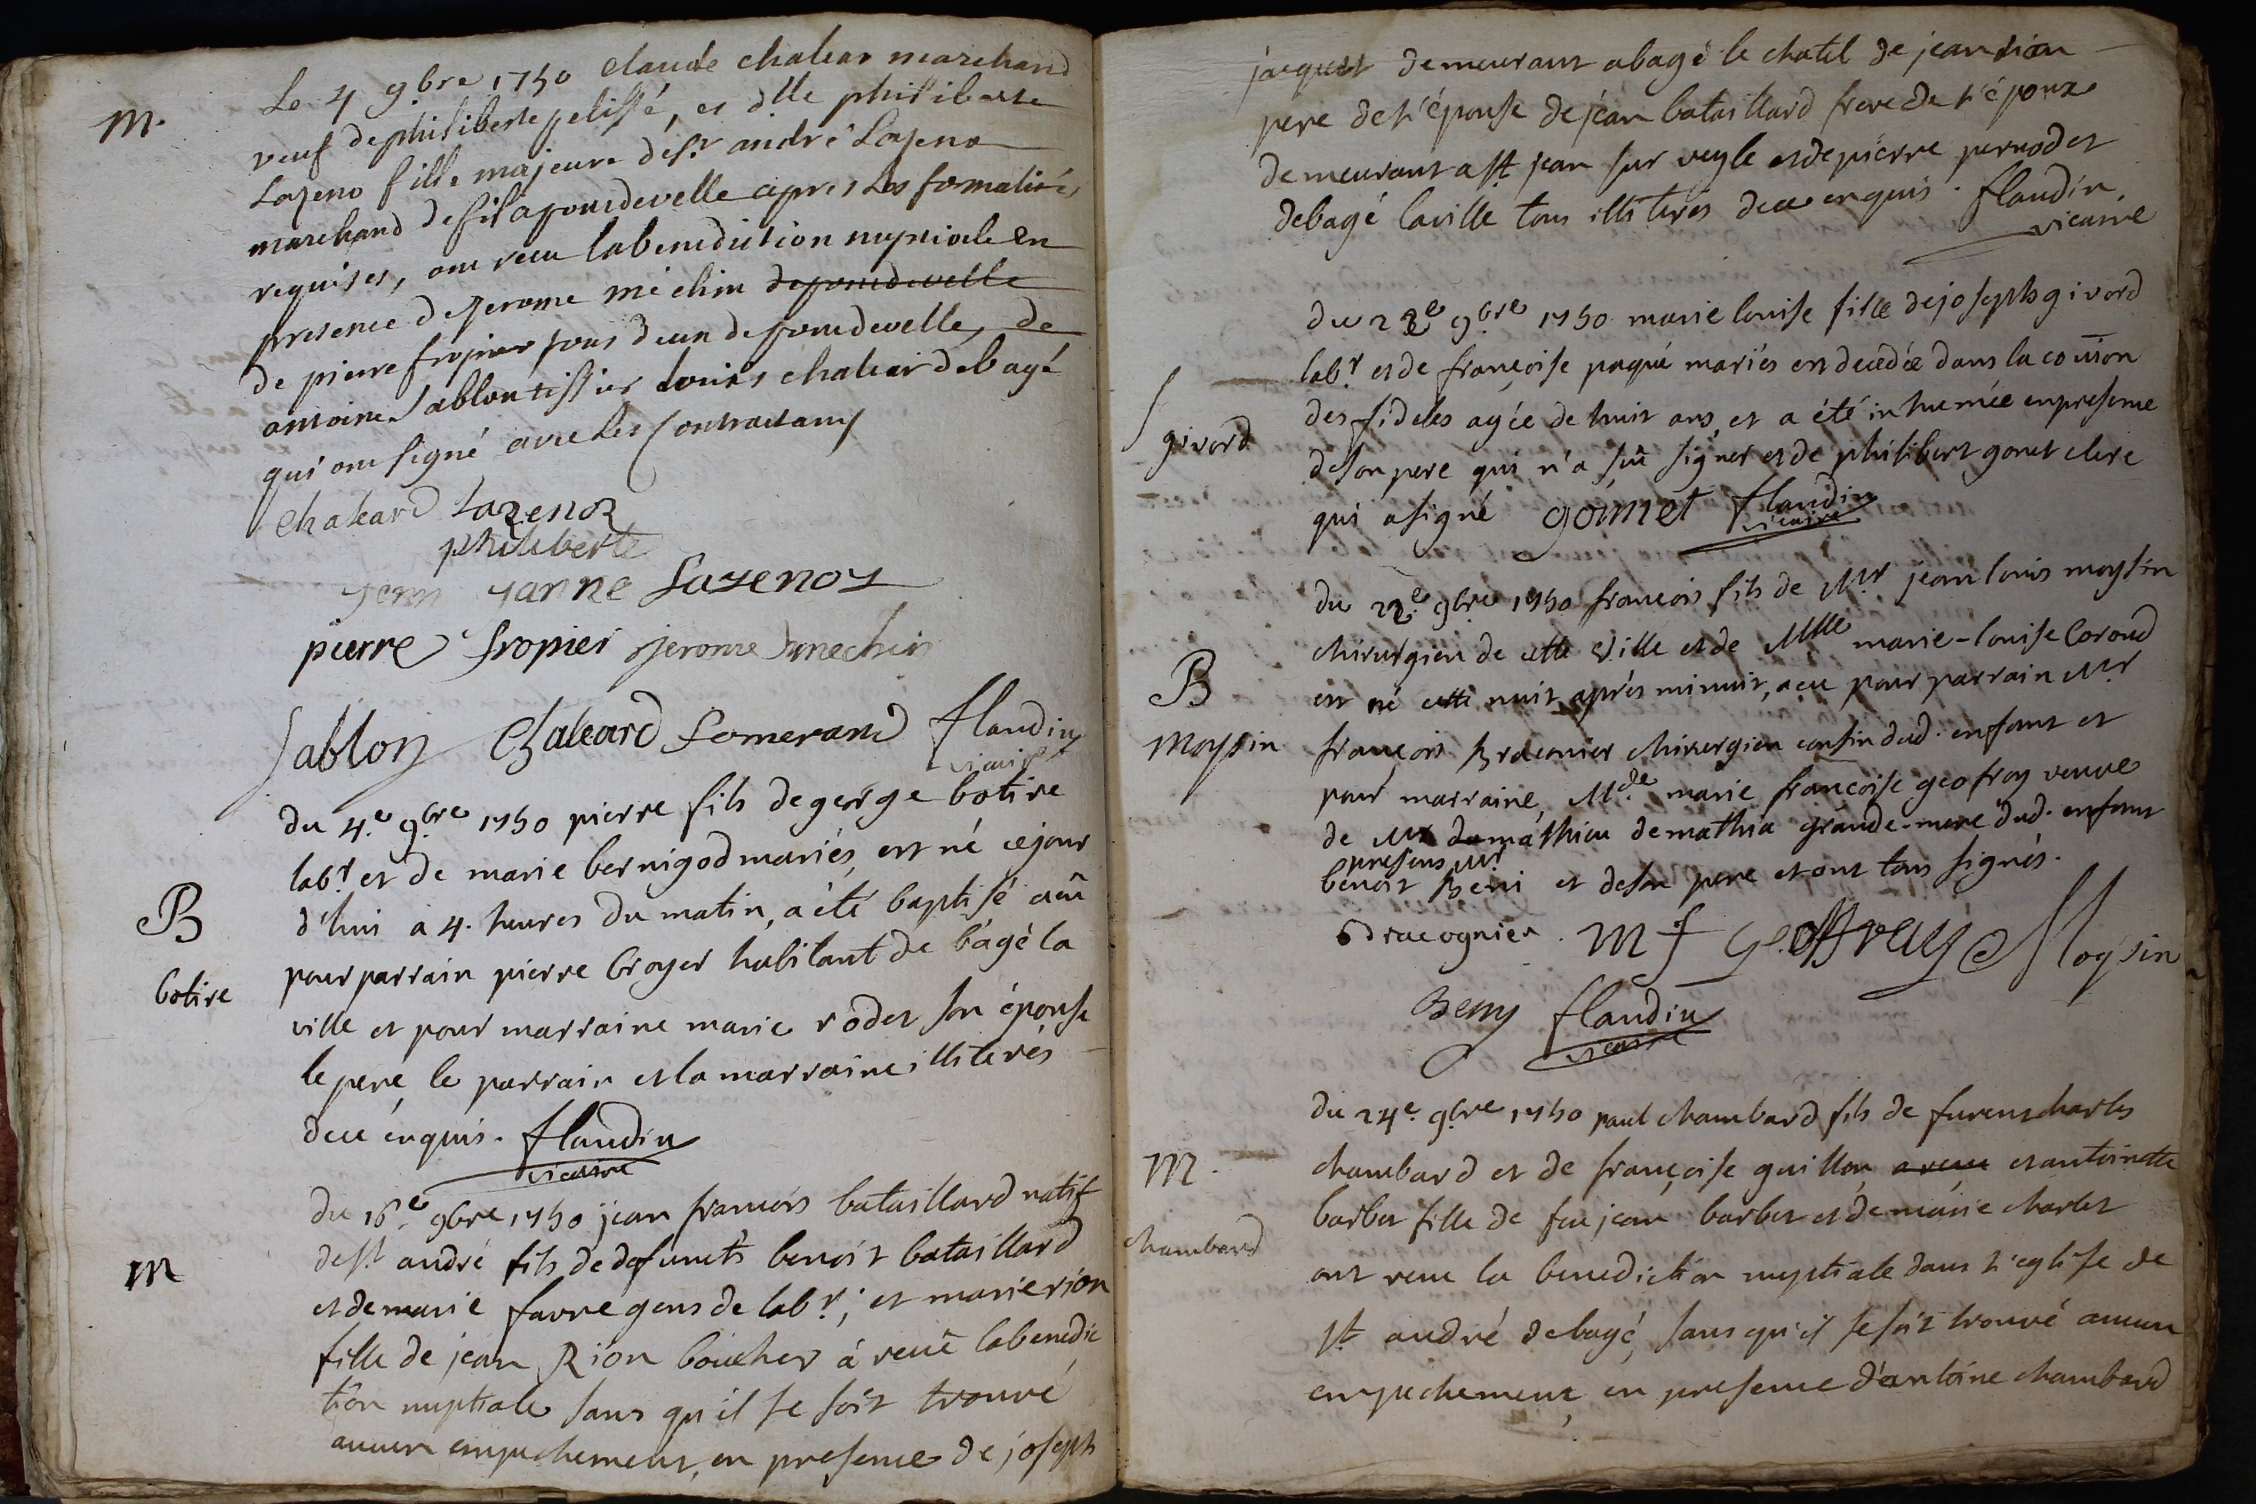 M.
Le 4 9bre 1750 claude chalear marchand
veuf de philiberte pelissé, et dlle philiberte
Lazeno fille majeure de sr andré Lazeno
marchand de fil a pondevelle apres les formalités
requises, ont recu la benediction nuptiale en
presence de jerome méchin depondevelle
de pierre fropier tous deux de pondevelle, de
antoine Sablon tissier Louis chalear debagé
qui ont signé avec les Contractans
Chaleard Lazenoz
philiberte
janne Lazenoz
pierre fropier jerome mechin
Sablon Chaleard Lomerand flandin
vicaire
B
botire
du 4.e 9bre 1750 pierre fils de george botire
labr. et de marie bernigod mariés, est né cejour
d'hui a 4. heures du matin, a été baptisé a eû
pour parrain pierre broyer habitant de bagé la
ville et pour marraine marie rodet son épouse
le pere, le parrain et la marraine illiterés
deue enquis. flandin
vicaire
M
du 16.e 9bre 1750 jean francois bataillard natif
de st. andré fils de defuncts benoit bataillard
et de marie favre gens de labr.; et marie rion
fille de jean Rion boucher à receu la benedic
tion nuptiale sans qu'il se soit trouvé
aucun empechement, en presence de joseph
jacquet demeurant a bagé le chatel de jean rion
pere de l'épouse de jean bataillard frere de l'époux
demeurant a st. jean sur veyle et de pierre pernodet
debagé laville tous illiterés deue enquis. flandin
vicaire
givord
du 22e 9bre 1750 marie louise fille de joseph givord
labr. et de françoise paqué mariés est decedée dans la coũion
des fideles agée de huit ans, et a été inhumée en presence
de son pere qui n'a sçû signer et de philibert gonet clerc
qui a signé gonnet flandin
vicaire
B
Moysin
du 22.e 9bre 1750 francois fils de Mr. jean louis moysin
chirurgien de cette ville et de Mlle marie-louise Coroud
est né cette nuit, après minuit, a eu pour parrain Mr
francois Braconier chirurgien cousin dud. enfant et
pour marraine, Mde marie francoise geofroy veuve
de Mr damathieu demathia grande-mere dud. enfant
presens Mr
benoit Beni et de son pere et ont tous signés.
Bracognier. M f Geoffray Moysin
Beny flandin
vicaire
M.
chambard
du 24e. 9bre 1750 paul chambard fils de furent charles
chambard et de françoise guillon a receu et antoinette
barbet fille de feu jean barbet et de marie charlet
ont receu la benediction nuptiale dans l'eglise de
st. andré debagé, sans qu'il se soit trouvé aucun
empechement, en presence d'antoine chambard